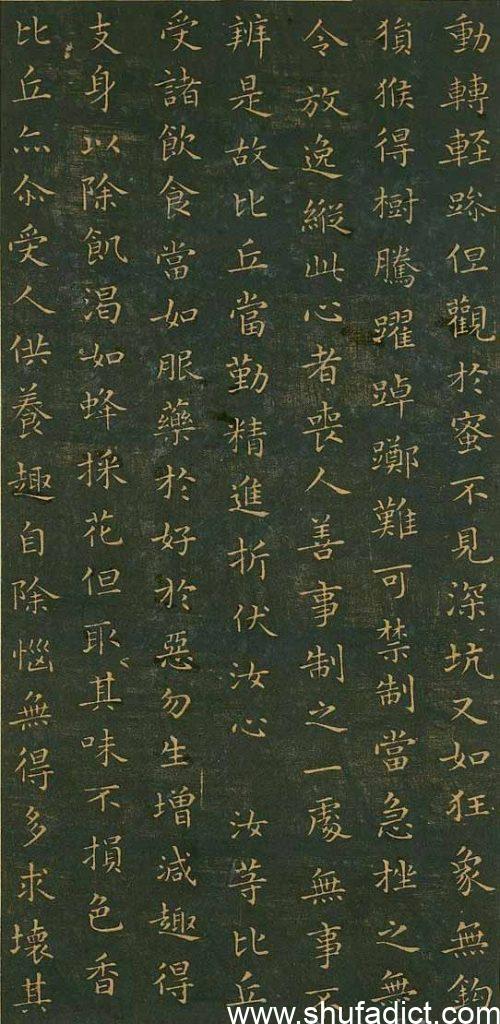 動轉輕躁但觀於蜜不見深坑又如狂象無鉤
猨猴得樹騰躍踔躑難可禁制當急挫之無
令放逸縱此心者喪人善事制之一處無事不
辨是故比丘當勤精進折伏汝心 汝等比丘
受諸飲食當如服藥於好於惡勿生增減趣得
支身以除飢渴如蜂採花但取其味不損色香
比丘亦尒受人供養趣自除惱無得多求壞其
www.shufadict.com